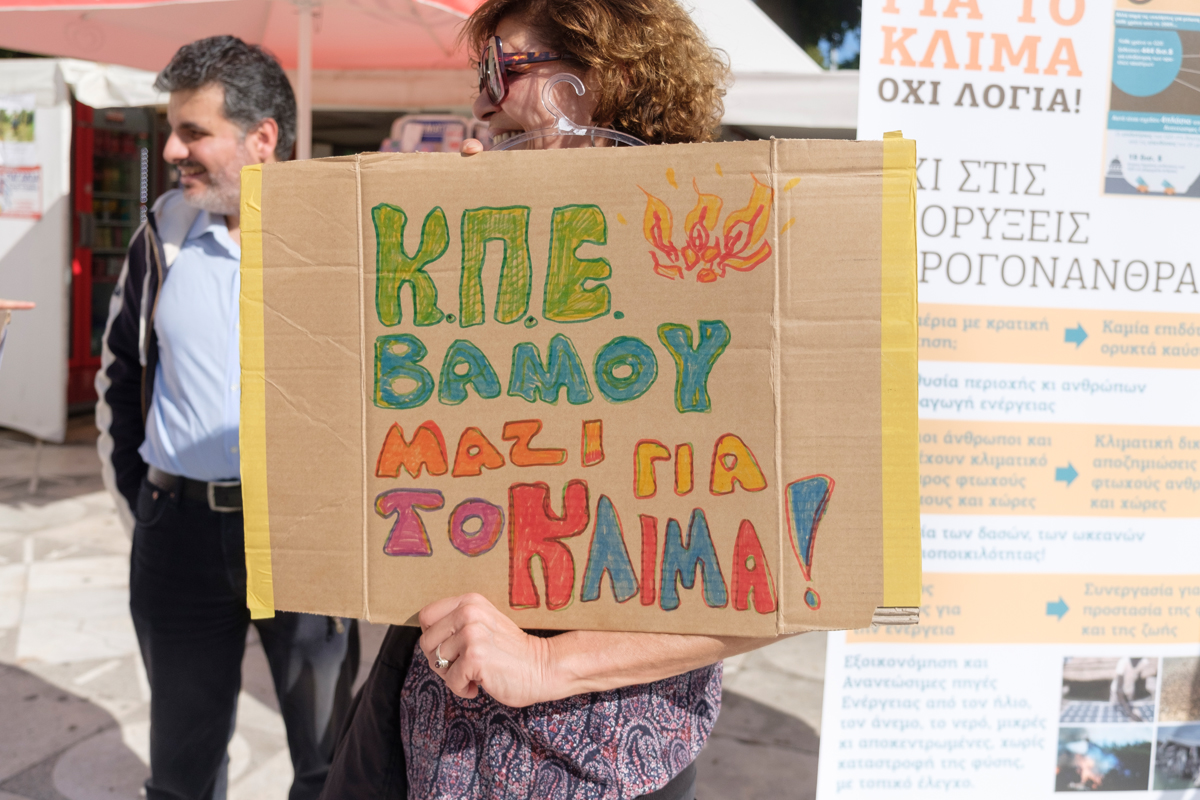 Κ.Π.Ε.
ΒΑΜΟΥ
ΜΑΖΙ ΓΙΑ
ΤΟ ΚΛΙΜΑ!
ΓΙΑ ΤΟ
ΚΛΙΜΑ
ΟΧΙ ΛΟΓΙΑ!
ΣΤΙΣ
με κρατική
Καμία
ορυκτά
περιοχής κι ανθρώπων
ενέργειας
άνθρωποι και
έχουν κλιματικό
φτωχούς
και χώρες
Κλιματική
αποζημιώσεις
φτωχούς
και χώρες
των δασών, των ωκεανών
για
ενέργεια
Συνεργασία για
προστασία της
και της ζωής
Εξοικονόμηση και
Ανανεώσιμες πηγές
Ενέργειας από τον ήλιο,
τον άνεμο, το νερό, μικρές
κι αποκεντρωμένες, χωρίς
καταστροφή της φύσης,
με τοπικό έλεγχο.